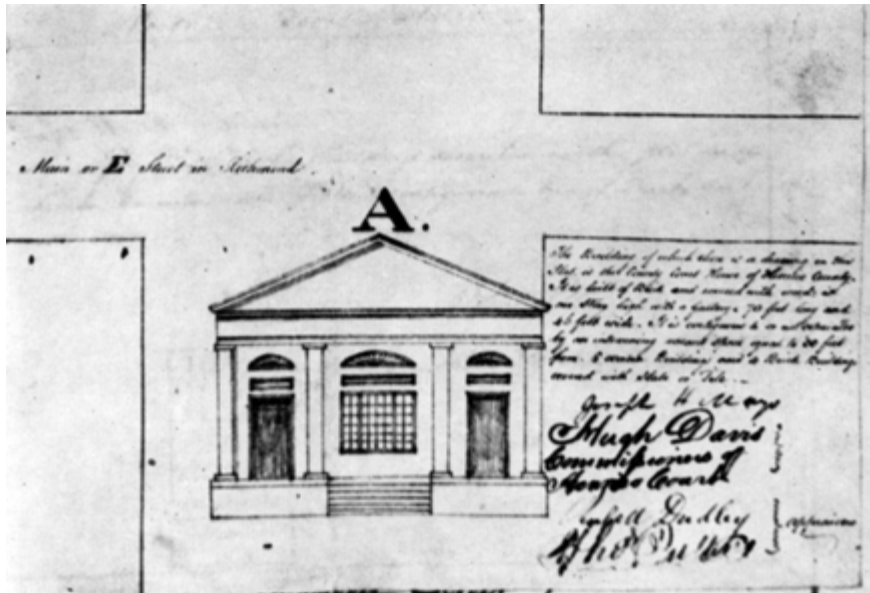 Main or E Street in Richmond
A.
The Building of which there is a drawing on this
Plat is the County Court House of Henrico County.
It is built of Brick and covered with wood, is
one Story high with a Gallery, 70 feet long and
feet wide. It is contiguous to
by an intervening vacant space equal to 20 feet
from Building and a Brick Building
covered with Slate or Tile
Joseph Mayo
Hugh Davis
Commissioners of
Henrico Court
Dudley
appraisers